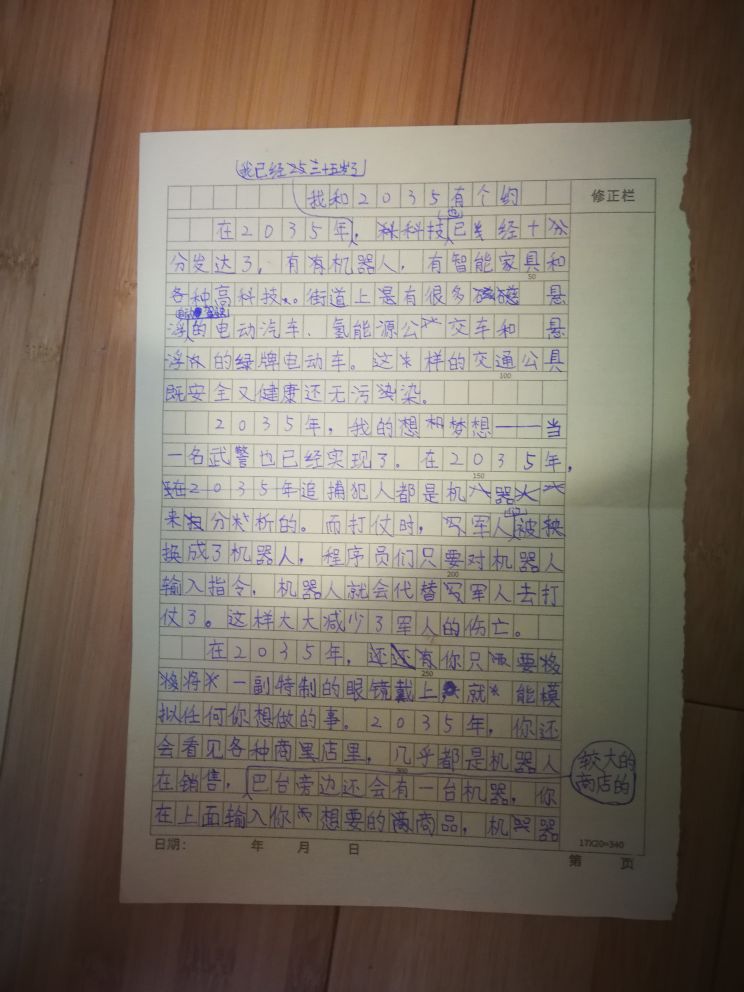 我已经三十五岁了
我和2035有个约
修正栏
也
在2035年,科技已经十分
分发达了,有有机器人,有智能家具和
50
各种高科技。街道上是有很多 悬
浮的电动汽车、氢能源公交车和悬
浮的绿牌电动车。这样的交通公具
100
既安全又健康还无污染。
2035年,我的想和梦想——当
一名武警也已经实现了。在2035年,
150
在2035年追捕犯人都是机器人
来分析的。而打仗时,军人被
换成了机器人,程序员们只要对机器人
200
输入指令,机器人就会代替军人去打
仗了。这样大大减少了军人的伤亡。
在2035年,还有你只要将
250
将一副特制的眼镜戴上,就能模
拟任何你想做的事。2035年,你还
会看见各种商店里,几乎都是机器人
300
较大的
商店的
在销售,巴台旁边还会有一台机器,你
在上面输入你想要的商品,机器
17X20=340
日期: 年 月 日
第 页